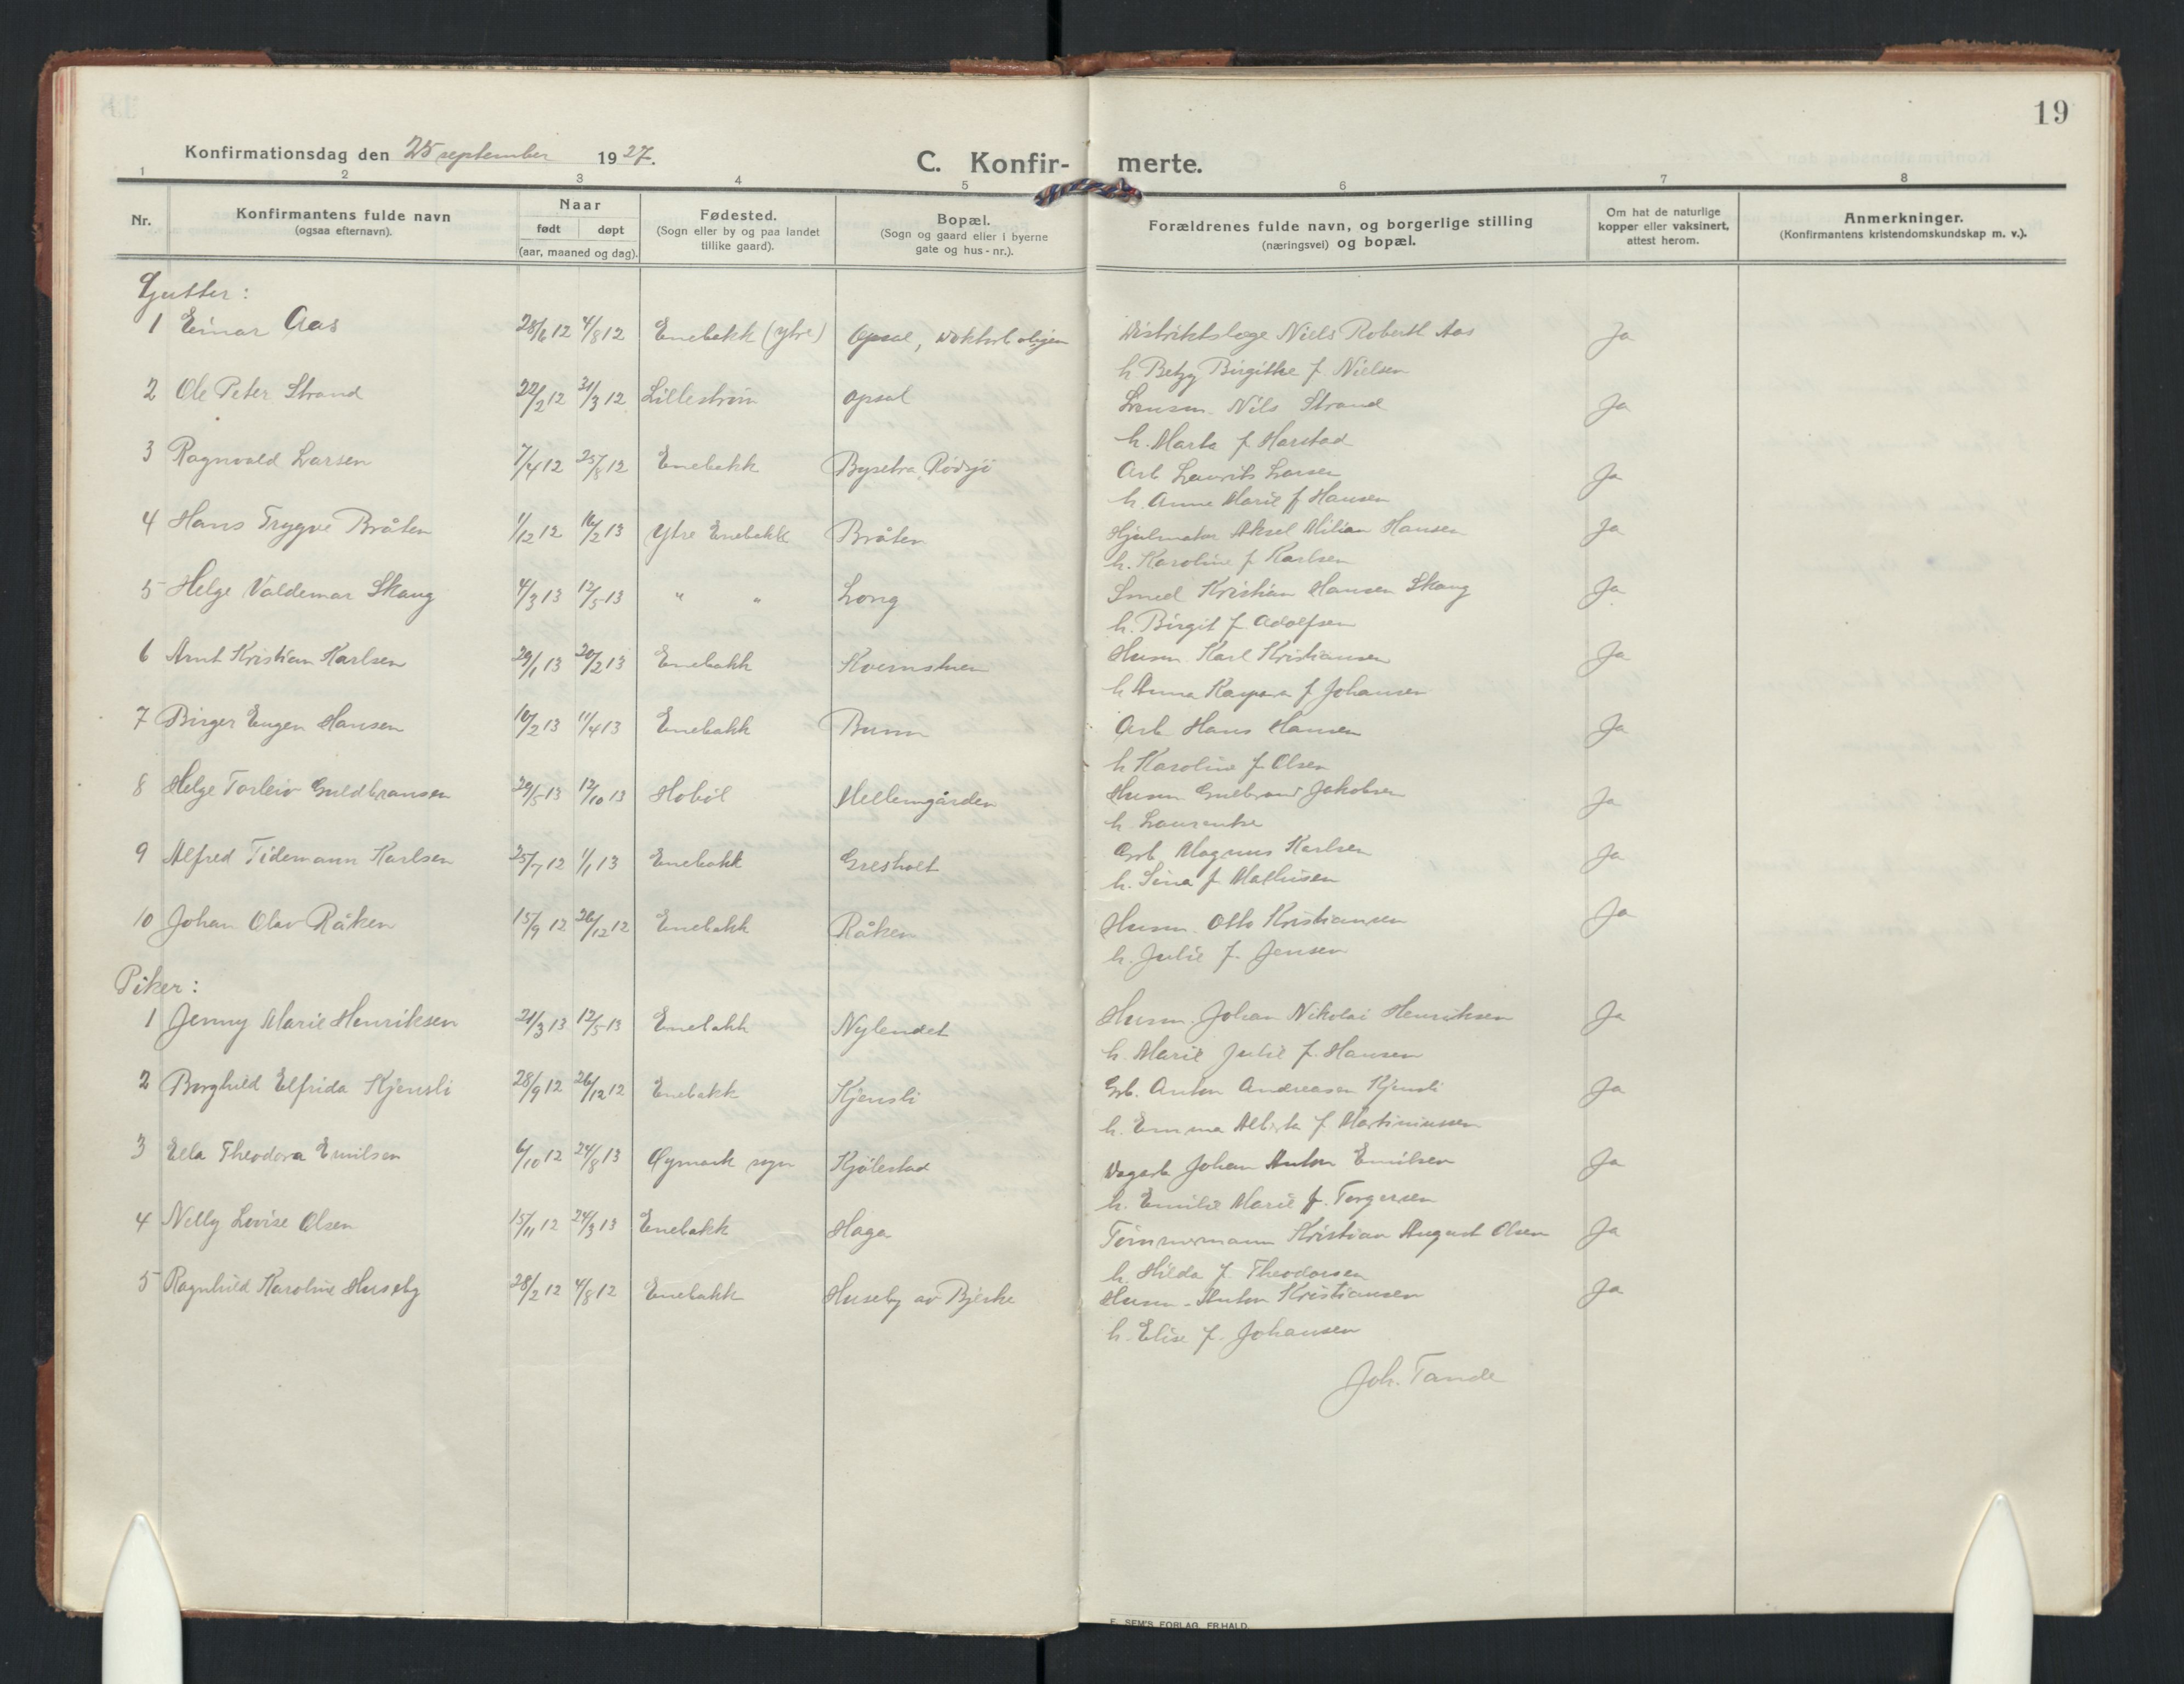 19
Konfirmationsdag den 25 september 1927.
C. Konfir- merte.
1 2 3 4 5 6 7 8
Nr.
Konfirmantens fulde navn
(ogsaa efternavn).
Naar
født døpt
(aar, maaned og dag).
Fødested.
(Sogn eller by og paa landet
tillike gaard).
Bopæl.
(Sogn og gaard eller i byerne
gate og hus-nr.).
Forældrenes fulde navn, og borgerlige stilling
(næringsvei) og bopæl.
Om hat de naturlige
kopper eller vaksinert,
attest herom.
Anmerkninger.
(Konfirmantens kristendomskundskap m. v.).
Gutter:
1 Einar Aas 28/6 12 4/8 12 Enebakk (ytre) Opsal, Doktorboligen Distriktslæge Niels Robertl Aas Ja
h Betzy Birgithe f. Nielsen
2 Ole Peter Strand 22/2 12 31/3 12 Lillestrøm Opsal Lensm. Nils Strand Ja
h. Marta f. Harstad
3 Ragnvald Larsen 7/4 12 25/8 12 Enebakk Bysetra Rødsjö Arb Laurits Larsen Ja
h. Anne Marie f Hansen
4 Hans Trygve Bråten 1/12 12 16/2 13 Ytre Enebakk Bråten Hjulmaker Aksel Milian Hansen Ja
h. Karoline f Karlsen
5 Helge Valdemar Skaug 4/3 13 12/5 13 " " Long Smed Kristian Hansen Skaug Ja
h. Birgit f. Adolfsen
6 Arnt Kristian Karlsen 29/1 13 20/2 13 Enebakk Kvernstuen Husm. Karl Kristiansen Ja
h Anna Kaspara f Johansen
7 Birger Eugen Hansen 10/2 13 11/4 13 Enebakk Bunn Arb Hans Hansen Ja
h Karoline f. Olsen
8 Helge Torleiv Guldbransen 29/5 13 12/10 13 Hobøl Mellemgården Husm Gulbrand Jakobsen Ja
h. Laurentze
9 Alfred Tidemann Karlsen 25/7 12 1/1 13 Enebakk Gresholt Grb. Magnus Karlsen Ja
h. Lina f Mathisen
10 Johan Olav Råken 15/9 12 26/12 12 Enebakk Råken Husm. Otto Kristiansen Ja
h. Julie f. Jensen
Piker:
1 Jenny Marie Henriksen 21/3 13 12/5 13 Enebakk Nylendet Husm. Johan Nikolai Henriksen Ja
h. Marie Julie f. Hansen
2 Borghild Elfrida Kjensli 28/9 12 26/12 12 Enebakk Kjensli Grb. Anton Andreasen Kjensli Ja
h. Emma Alberta f Martiniussen
3 Ella Theodora Emilsen 6/10 12 24/8 13 Øymark sogn Kjölestad Dagarb Johan Anton Emilsen Ja
h. Emilie Marie f. Torgersen
4 Nelly Lovise Olsen 15/11 12 24/3 13 Enebakk Haga Tømmermann Kristian August Olsen Ja
h. Hilda f. Theodorsen
5 Ragnhild Karoline Huseby 28/2 12 4/8 12 Enebakk Huseby av Bjerke Husm. Anton Kristiansen Ja
h. Elise f. Johansen
Joh. Tande
E. SEM'S FORLAG, FR.HALD